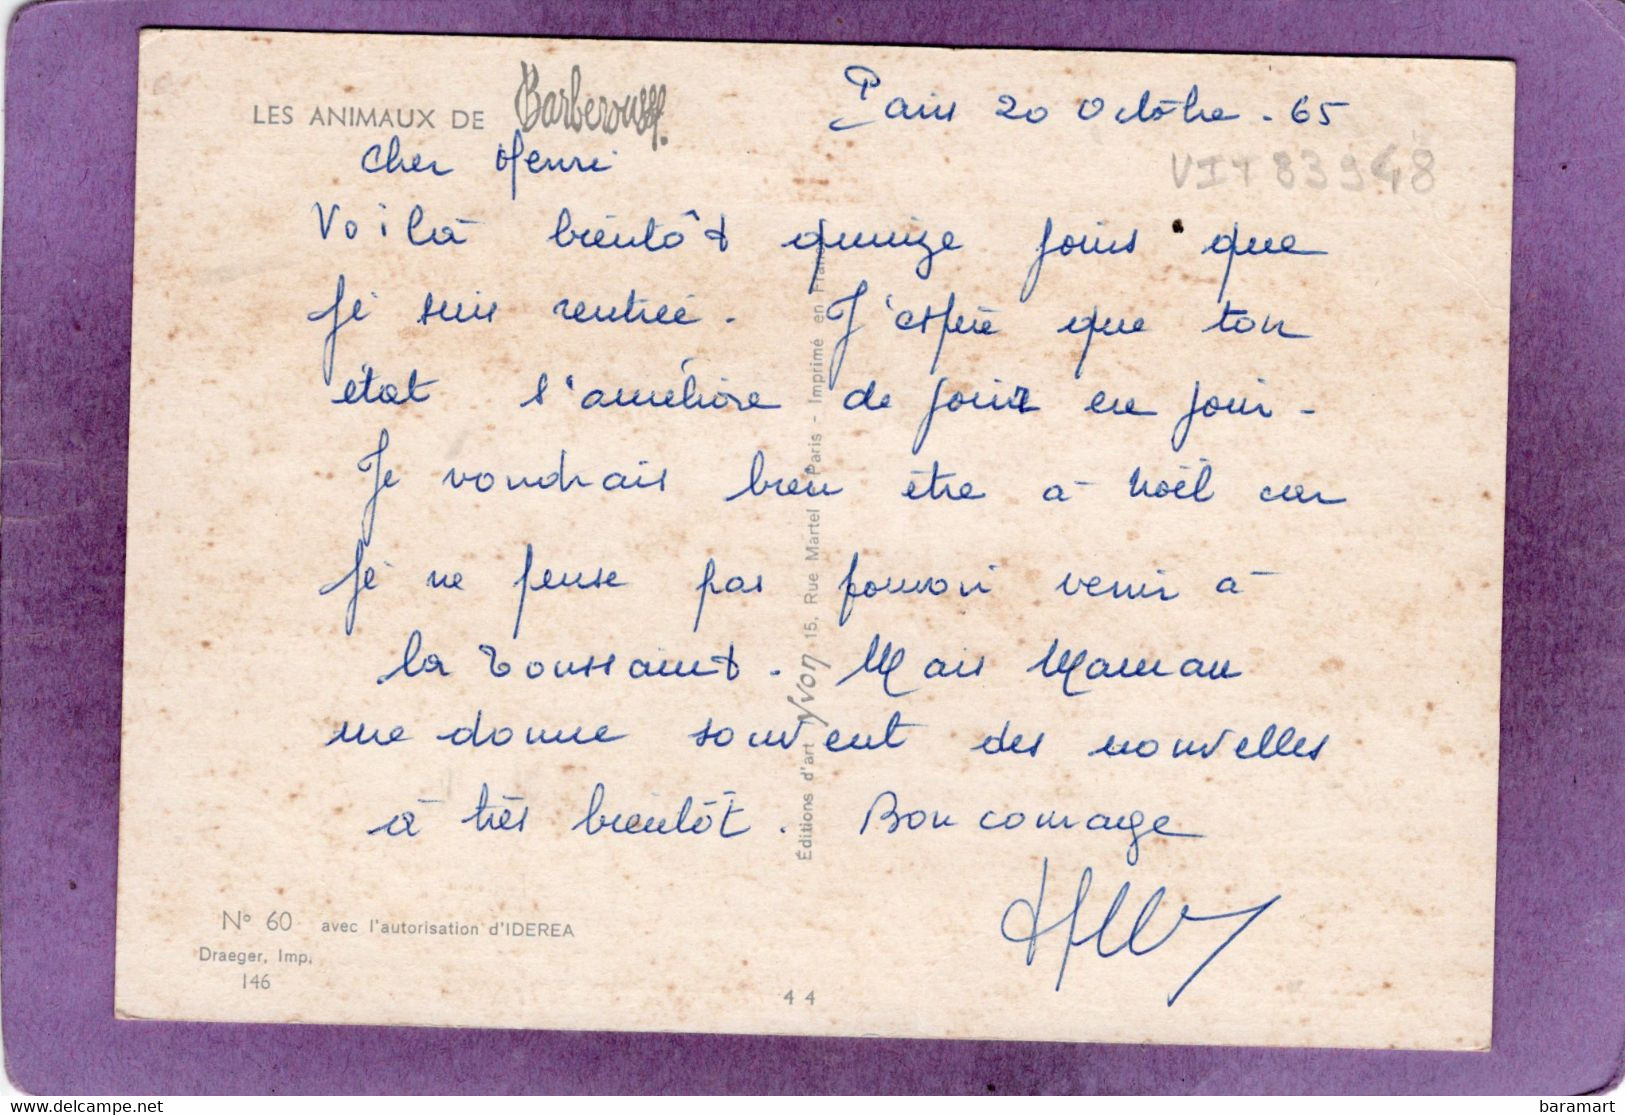 LES ANIMAUX DE Barberousse.
Paris 20 Octobre - 65
VIT 83948
Cher Henri
Voilà bientôt quinze jours que
je suis rentrée. J'espère que ton
état s'améliore de jour en jour -
Je voudrais bien être à Noël car
je ne pense pas pouvoir venir à
la Toussaint. Mais Maman
me donne souvent des nouvelles
à très bientôt. Bon courage
Éditions d'art Yvon 15, Rue Martel Paris - Imprimé en France
N° 60 avec l'autorisation d'IDEREA
Draeger, Imp.
146
44
www.delcampe.net
baramart